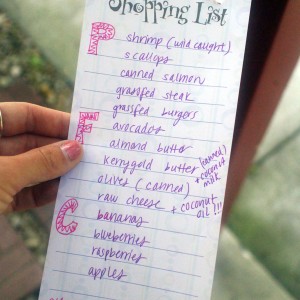 Shopping List
P shrimp (wild caught)
scallops
canned salmon
grassfed steak
grassfed burgers
F avocados
almond butter
kerrygold butter (canned) + coconut milk
olives (canned)
raw cheese + coconut oil!!!
C bananas
blueberries
raspberries
apples